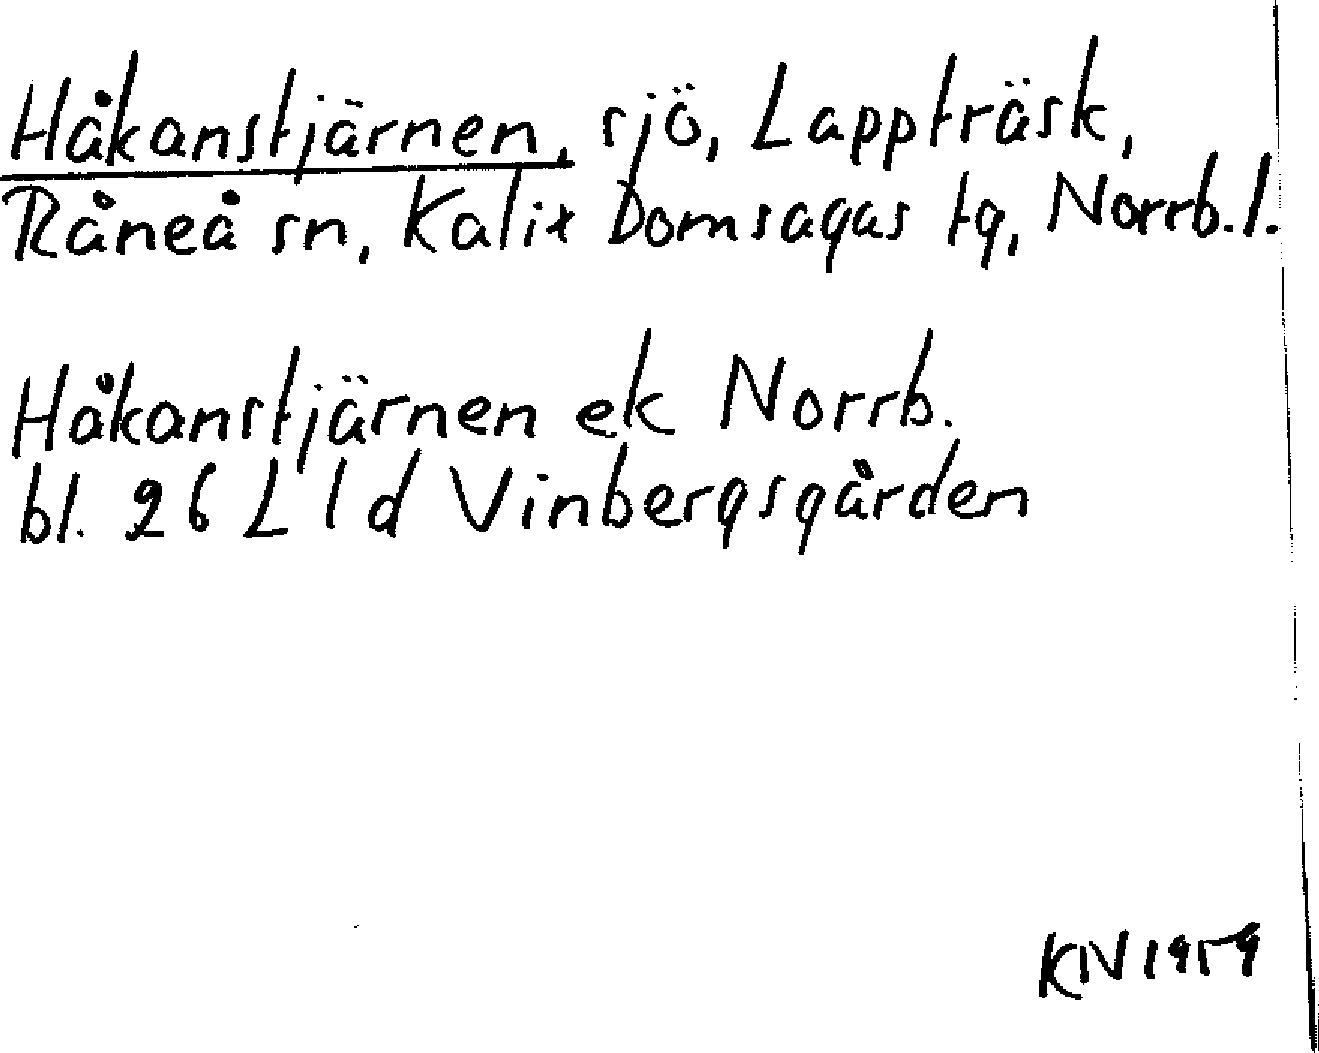 Håkanstjärnen, sjö, Lappträsk,
Råneå sn, Kalix Domsagas tg, Norrb. l.
Håkanstjärnen ek Norrb.
bl. 26 L 1 d Vinbergsgården
KN 1959